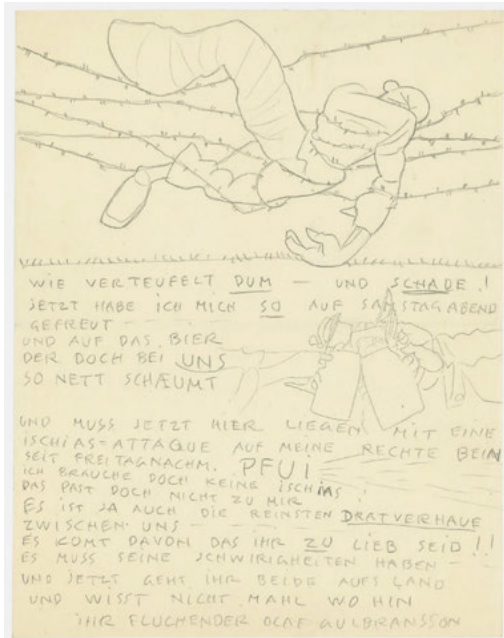 WIE VERTEUFELT DUM — UND SCHADE!
JETZT HABE ICH MICH SO AUF SAMSTAGABEND
GEFREUT —
UND AUF DAS BIER
DER DOCH BEI UNS
SO NETT SCHÆUMT
UND MUSS JETZT HIER LIEGEN MIT EINE
ISCHIAS=ATTAQUE AUF MEINE RECHTE BEIN
SEIT FREITAGNACHM. PFUI
ICH BRAUCHE DOCH KEINE ISCHIAS!
DAS PAST DOCH NICHT ZU MIR!
ES IST JA AUCH DIE REINSTEN DRATVERHAUE
ZWISCHEN UNS —
ES KOMT DAVON DAS IHR ZU LIEB SEID!!
ES MUSS SEINE SCHWIRIGHEITEN HABEN —
UND JETZT GEHT IHR BEIDE AUFS LAND
UND WISST NICHT MAHL WO HIN
IHR FLUCHENDER OLAF GULBRANSSON